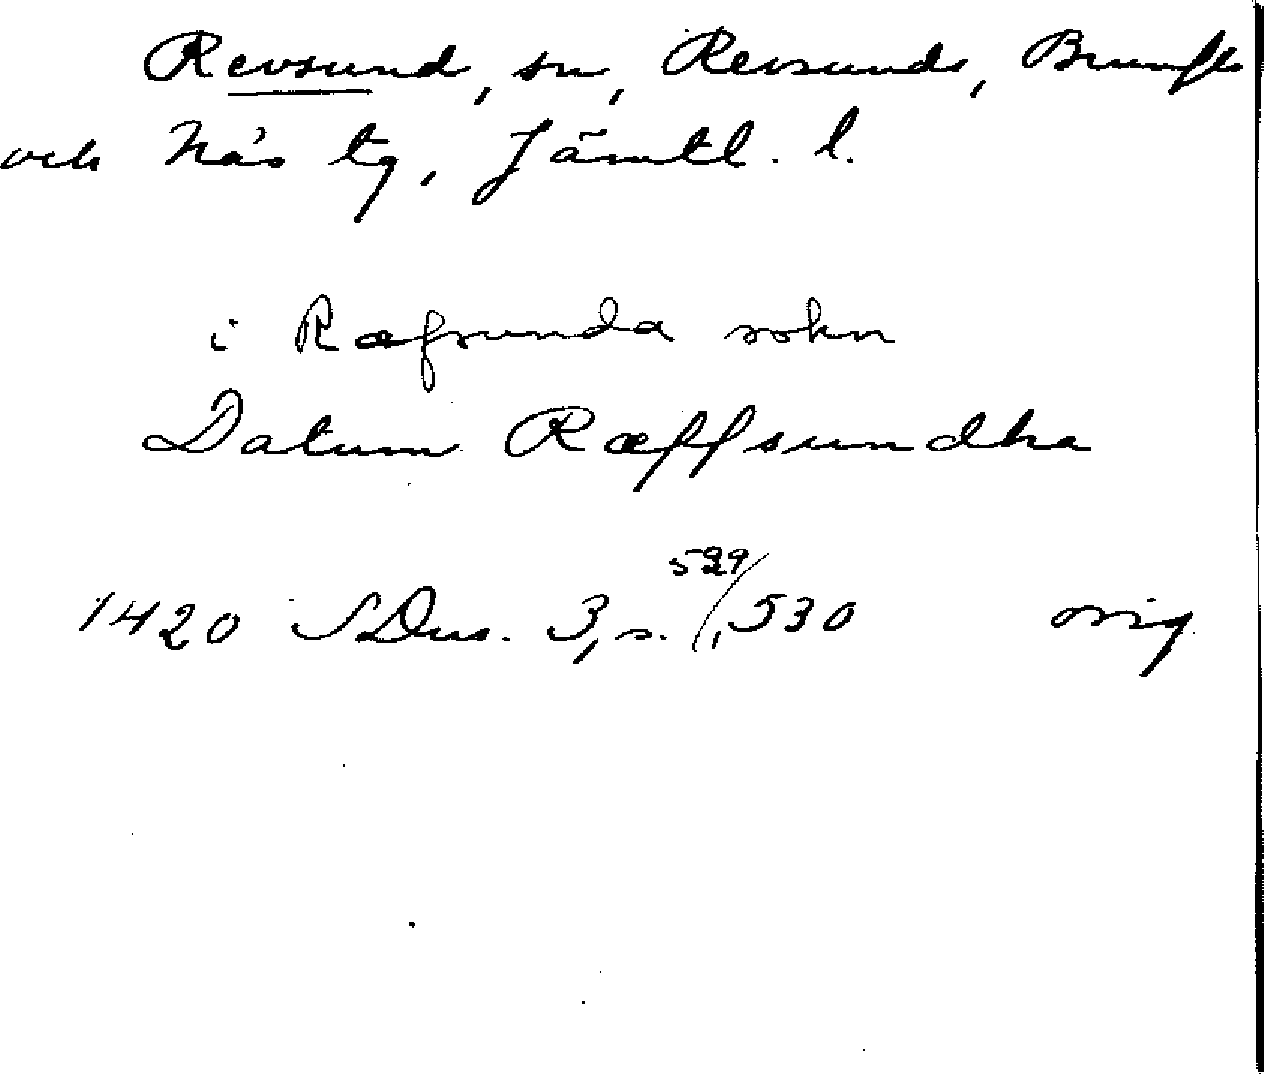 Revsund, sn, Revsunds, Brunflo
och Näs tg, Jämtl. l.
i Ræfsunda sokn
Datum Ræffsundha
1420 SDns. 3, s. 529/, 530 orig.